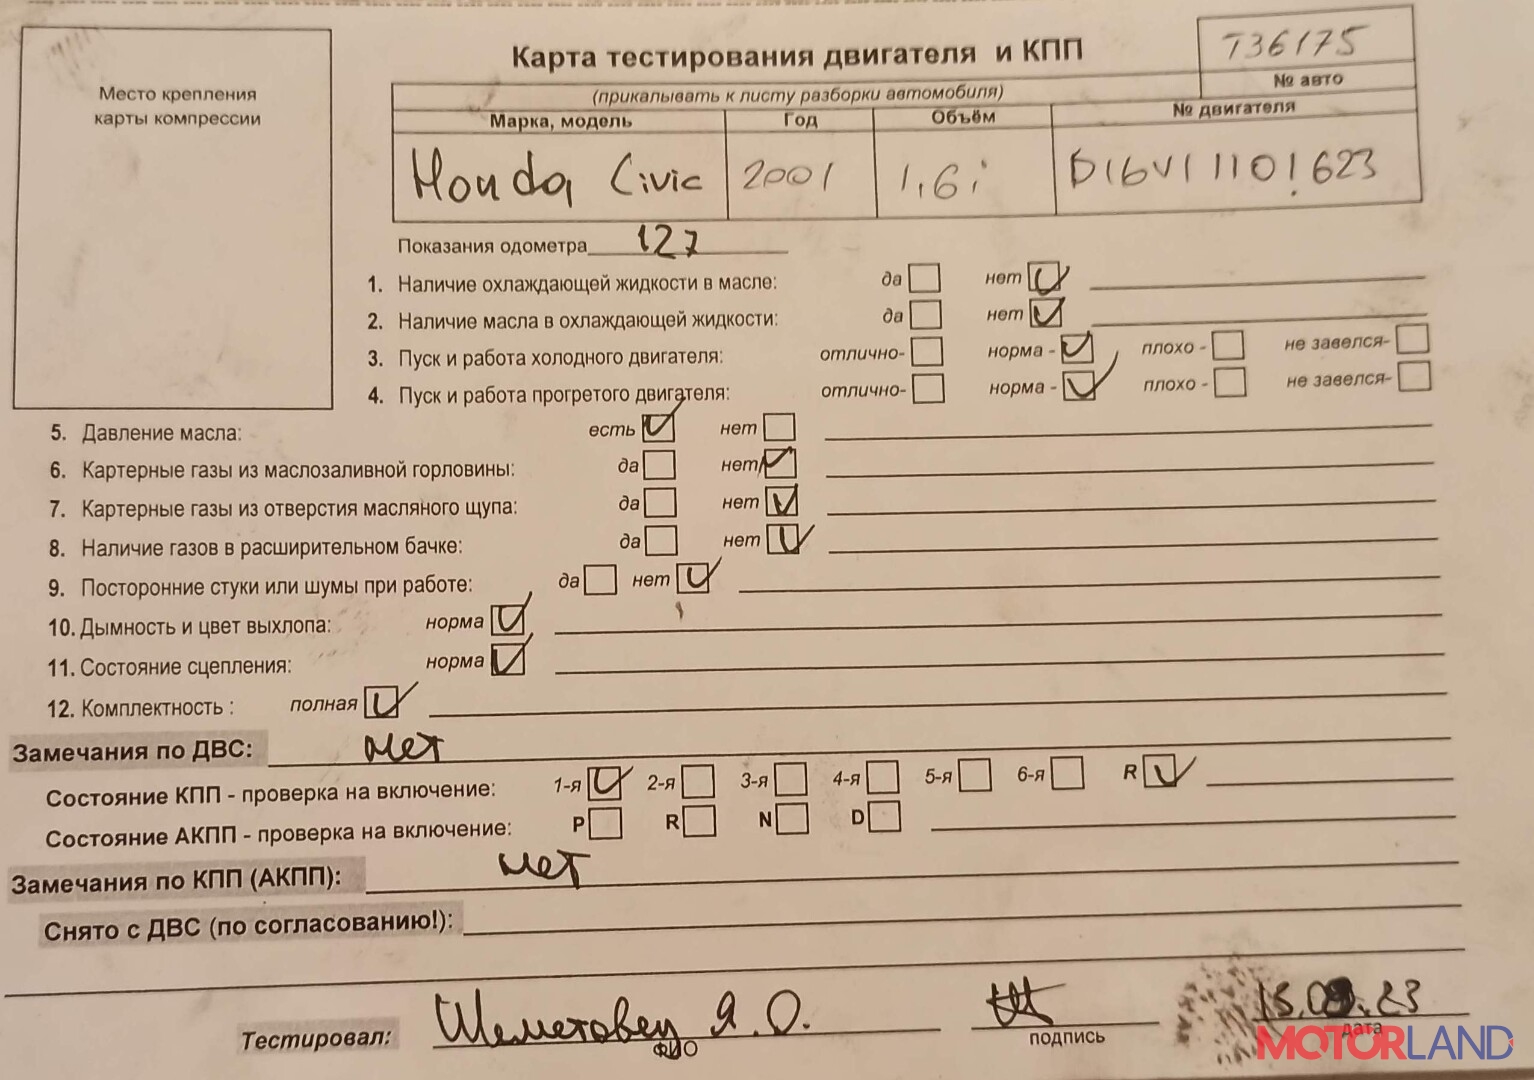 Место крепления
карты компрессии
Карта тестирования двигателя и КПП
T36175
№ авто
(прикалывать к листу разборки автомобиля)
Марка, модель Год Объём № двигателя
Honda Civic 2001 1,6i D16V1 1101623
Показания одометра 127
1. Наличие охлаждающей жидкости в масле: да нет
2. Наличие масла в охлаждающей жидкости: да нет
3. Пуск и работа холодного двигателя: отлично- норма - плохо - не завелся-
4. Пуск и работа прогретого двигателя: отлично- норма - плохо - не завелся-
5. Давление масла: есть нет
6. Картерные газы из маслозаливной горловины: да нет
7. Картерные газы из отверстия масляного щупа: да нет
8. Наличие газов в расширительном бачке: да нет
9. Посторонние стуки или шумы при работе: да нет
10. Дымность и цвет выхлопа: норма
11. Состояние сцепления: норма
12. Комплектность : полная
Замечания по ДВС: нет
Состояние КПП - проверка на включение: 1-я 2-я 3-я 4-я 5-я 6-я R
Состояние АКПП - проверка на включение: P R N D
Замечания по КПП (АКПП): нет
Снято с ДВС (по согласованию!):
Тестировал: Шеметовец Я. О. 15.09.23
ФИО подпись дата
MOTORLAND